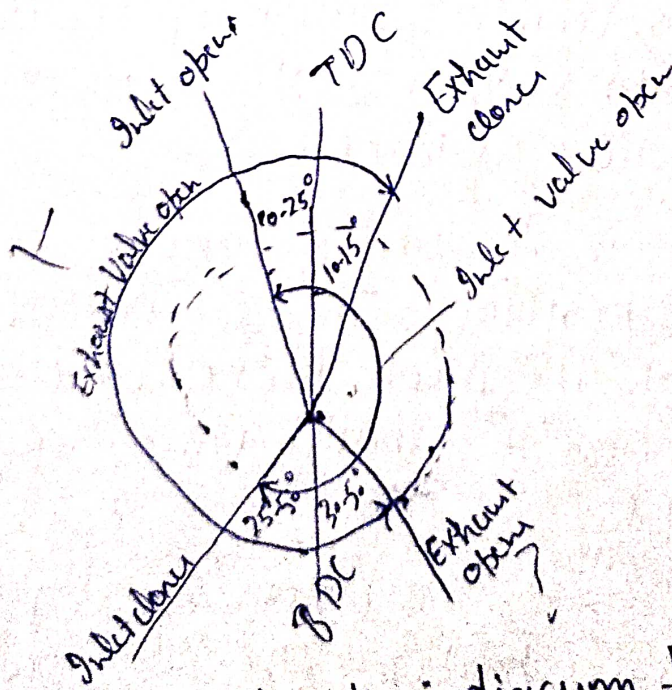 Inlet opens
TDC
Exhaust
closes
Inlet valve open
Exhaust Valve open
10-25°
10-15°
25-50°
30-50°
Inlet closes
BDC
Exhaust
opens
diagram